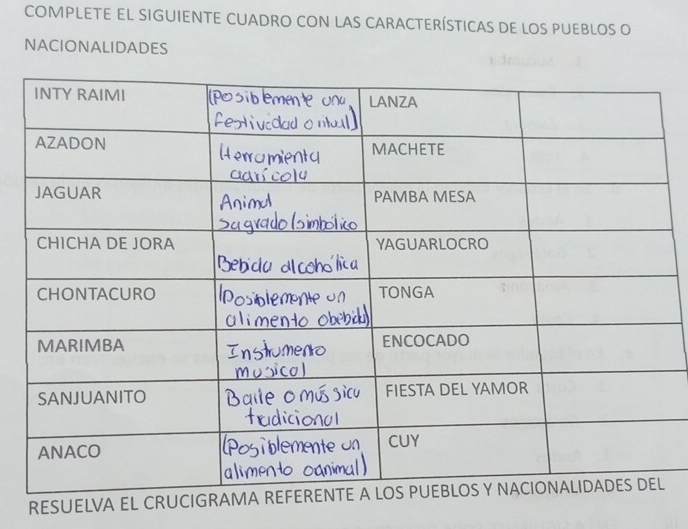 COMPLETE EL SIGUIENTE CUADRO CON LAS CARACTERÍSTICAS DE LOS PUEBLOS O
NACIONALIDADES
INTY RAIMI
(posiblemente una
festividad o ritual)
LANZA
AZADON
Herramienta
agrícola
MACHETE
JAGUAR
Animal
sagrado/simbólico
PAMBA MESA
CHICHA DE JORA
Bebida alcohólica
YAGUARLOCRO
CHONTACURO
(Posiblemente un
alimento obebida)
TONGA
MARIMBA
Instrumento
musical
ENCOCADO
SANJUANITO
Baile o música
tradicional
FIESTA DEL YAMOR
ANACO
(Posiblemente un
alimento oanimal)
CUY
RESUELVA EL CRUCIGRAMA REFERENTE A LOS PUEBLOS Y NACIONALIDADES DEL